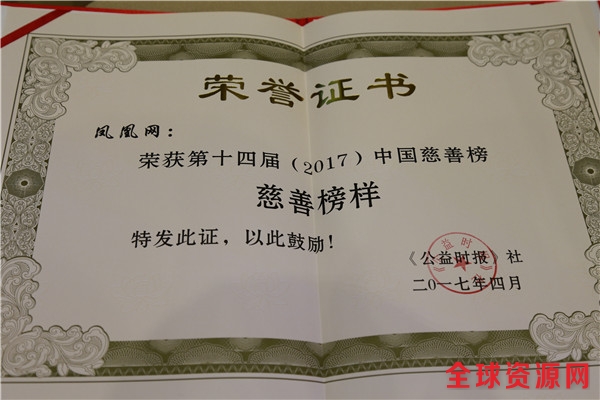 荣誉证书
凤凰网：
荣获第十四届（2017）中国慈善榜
慈善榜样
特发此证，以此鼓励！
《公益时报》社
二〇一七年四月
全球资源网